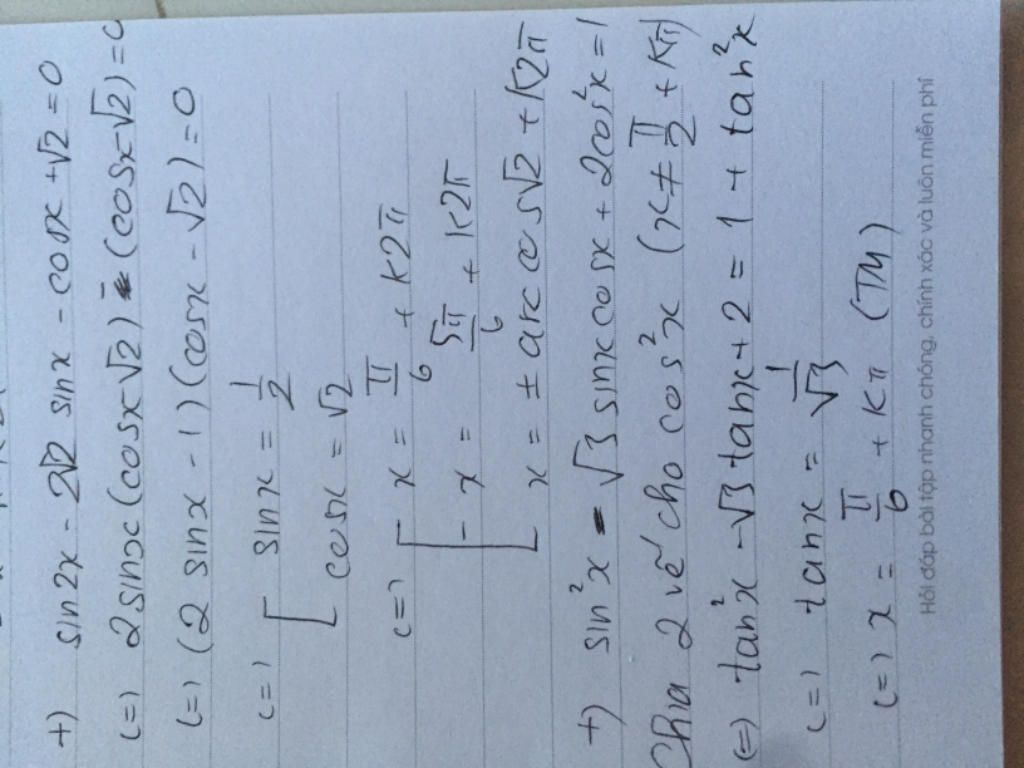 +) sin2x - 2√2 sinx - cosx + √2 = 0
(=) 2sinx(cosx√2) - (cosx-√2) = 0
(=) (2 sinx - 1)(cosx - √2) = 0
(=) [ sinx = 1/2
cosx = √2
(=) [ x = π/6 + k2π
x = 5π/6 + k2π
x = ± arccos√2 + k2π
+) sin²x - √3 sinxcosx + 2cos²x = 1
Chia 2 vế cho cos²x (x ≠ π/2 + kπ)
(=) tan²x - √3 tanx + 2 = 1 + tan²x
(=) tanx = 1/√3
(=) x = π/6 + kπ (TM)
Hỏi đáp bài tập nhanh chóng, chính xác và luôn miễn phí